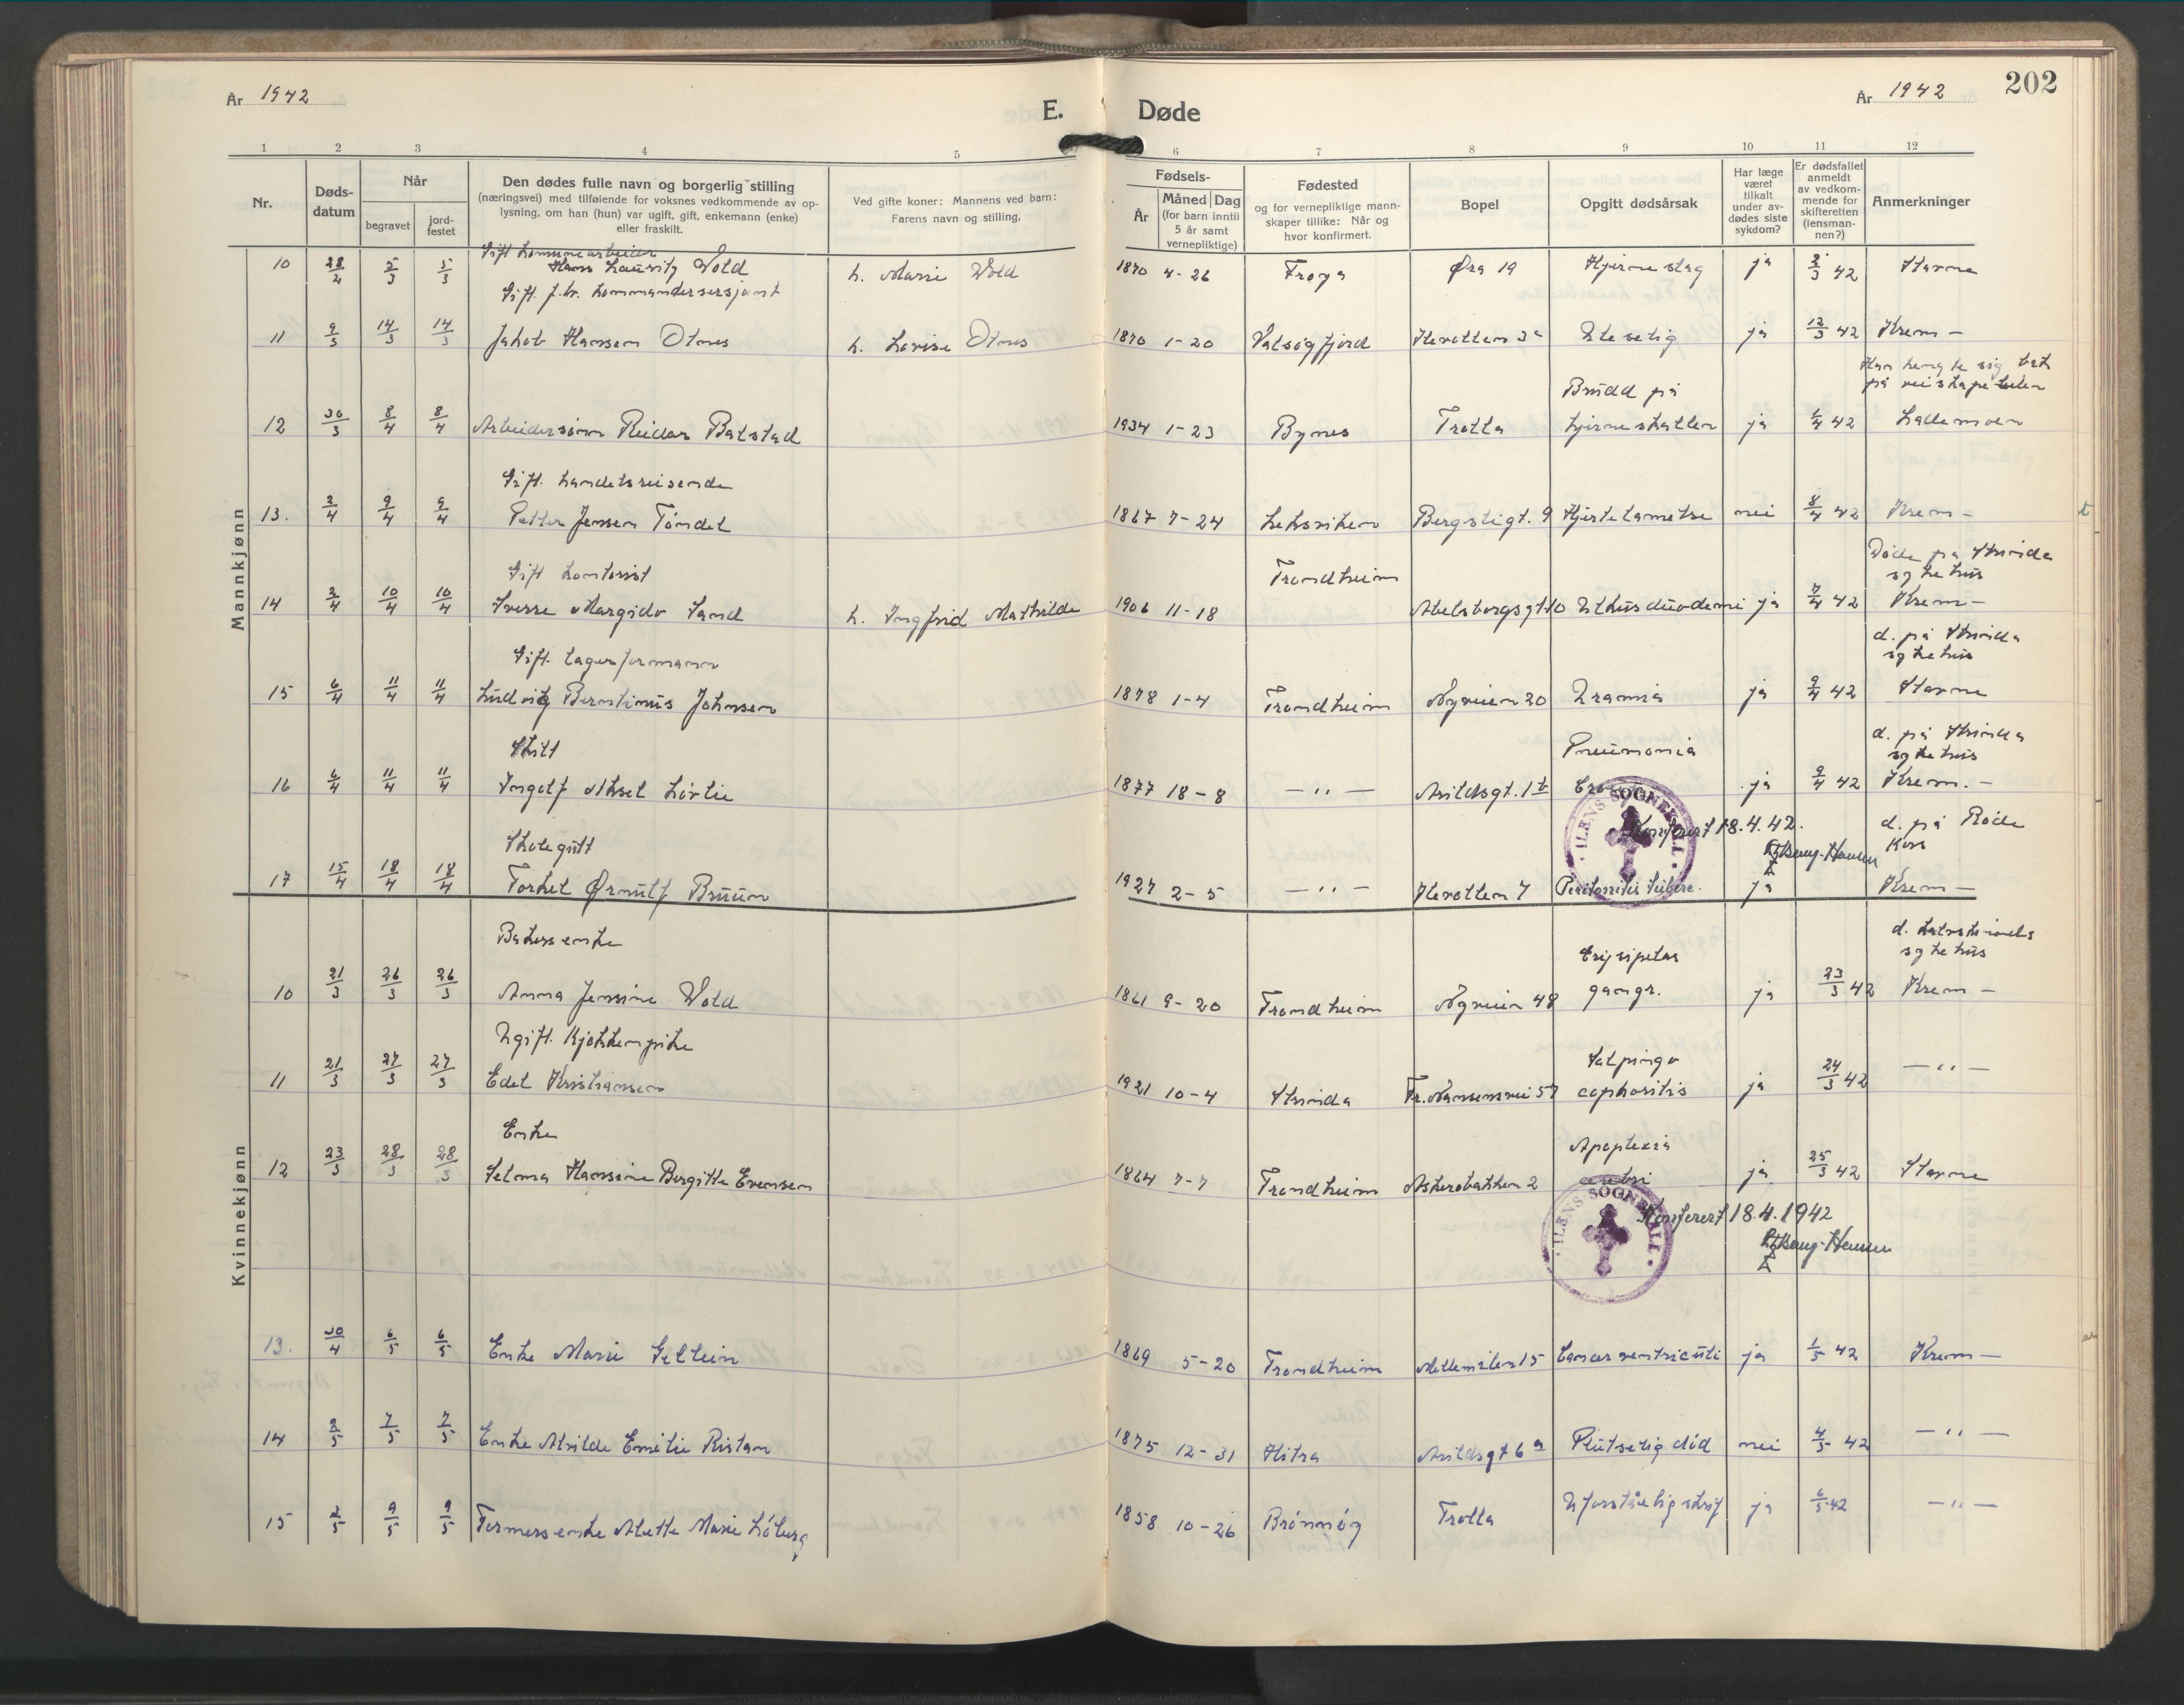 År 1942
E. Døde
År 1942
202
1 2 3 4 5 6 7 8 9 10 11 12
Nr.
Døds-
datum
Når
begravet
jord-
festet
Den dødes fulle navn og borgerlig stilling
(næringsvei) med tilføiende for voksnes vedkommende av op-
lysning, om han (hun) var ugift, gift, enkemann (enke)
eller fraskilt.
Ved gifte koner: Mannens ved barn:
Farens navn og stilling.
Fødsels-
År
Måned Dag
(for barn inntil
5 år samt
vernepliktige)
Fødested
og for vernepliktige mann-
skaper tillike: Når og
hvor konfirmert.
Bopel
Opgitt dødsårsak
Har læge
været
tilkalt
under av-
dødes siste
sykdom?
Er dødsfallet
anmeldt
av vedkom-
mende for
skifteretten
(lensman-
nen?)
Anmerkninger
Mannkjønn
Gift kommunearbeider
10 28/2 5/3 5/3 Hans Lauritz Wold h. Marie Wold 1870 4-26 Frøya Øra 19 Hjerneslag ja 2/3 42 Stavne
Gift. f.v.
11 9/3 14/3 14/3 Jakob Hansen Otnes h. Lovise Otnes 1870 1-20 Valsøyfjord ja 12/3 42 Krem-
Brudd på
12 30/3 8/4 8/4 Arbeidersønn Reidar Balstad 1934 1-23 Bynes Trolla hjerneskallen ja 42 Lademoen
Gift. handelsreisende
13. 2/4 9/4 9/4 Petter Jensen Tøndel 1867 7-24 Leksviken Bergsligt. 9 Hjertelamelse nei 8/4 42 Krem-
Gift kontorist Trondheim Døde på Strinda
sykehus
14 2/4 10/4 10/4 Sverre Margido Sand h. Ingfrid Mathilde 1906 11-18 ja 7/4 42 Krem-
Gift. lagerformann d. på Strinda
sykehus
15 6/4 11/4 11/4 Ludvig Berntinus Johnsen 1878 1-4 Trondheim Nyveien 20 Uramia ja 9/4 42 Stavne
Skilt Pneumonia d. på Strinda
sykehus
16 6/4 11/4 11/4 Ingolf Aksel Lørlie 1877 18-8 - " - Arildsgt. 1b ja 9/4 42 Krem.-
ILENS SOGNEKALL
Konferert 18.4.42.
Skolegutt d. på Røde
Kors
17 15/4 18/4 18/4 Torkel Ørnulf Bruun 1927 2-5 - " - Hevollen 7 Peritonitis tuberc. ja Krem-
Kvinnekjønn
Bakersenke Erysipelas sykehus
10 21/3 26/3 26/3 Anna Jensine Wold 1861 9-20 Trondheim Nyveien 48 gangr. ja 23/3 42 Krem-
Ugift. Kjøkkenpike Salpingo
11 21/3 27/3 27/3 Edel Kristiansen 1921 10-4 Strinda Fr. Nansensvei 57 oophoritis ja 24/3 42 - " -
Enke Apoplexia
12 23/3 28/3 28/3 Selma Hansine Bergitte Evensen 1864 7-7 Trondheim Askerobakken 2 cerebri ja 25/3 42 Stavne
ILENS SOGNEKALL
Konferert 18.4.1942
13. 30/4 6/5 6/5 Enke Marie Sellein 1869 5-20 Trondheim Mellemilen 15 Cancer ventriculi ja 1/5 42 Krem-
14 2/5 7/5 7/5 Enke Alvilde Emilie Ristan 1875 12-31 Hitra Arildsgt 6a Plutselig død nei 4/5 42 - " -
15 2/5 9/5 9/5 Formersenke Mette Marie Løberg 1858 10-26 Brønnøy Trolla Uforståelig skrif ja 6/5 42 - " -